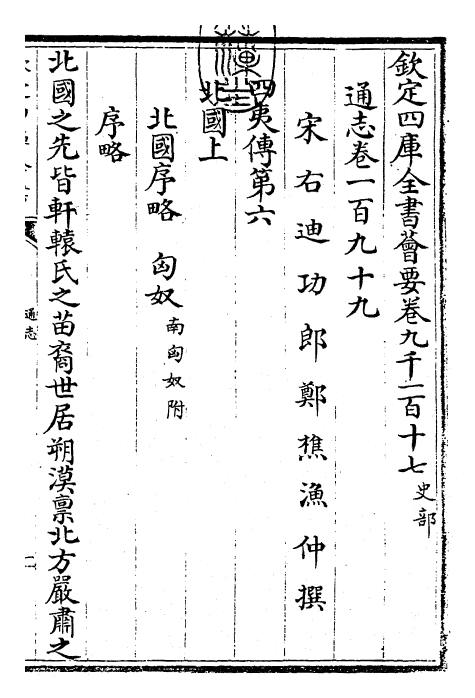 欽定四庫全書薈要卷九千一百十七史部
通志卷一百九十九
宋右迪功郎鄭樵漁仲撰
四夷傳第六
北國上
北國序略 匈奴南匈奴附
序略
北國之先皆軒轅氏之苗裔世居朔漠禀北方嚴肅之
通志